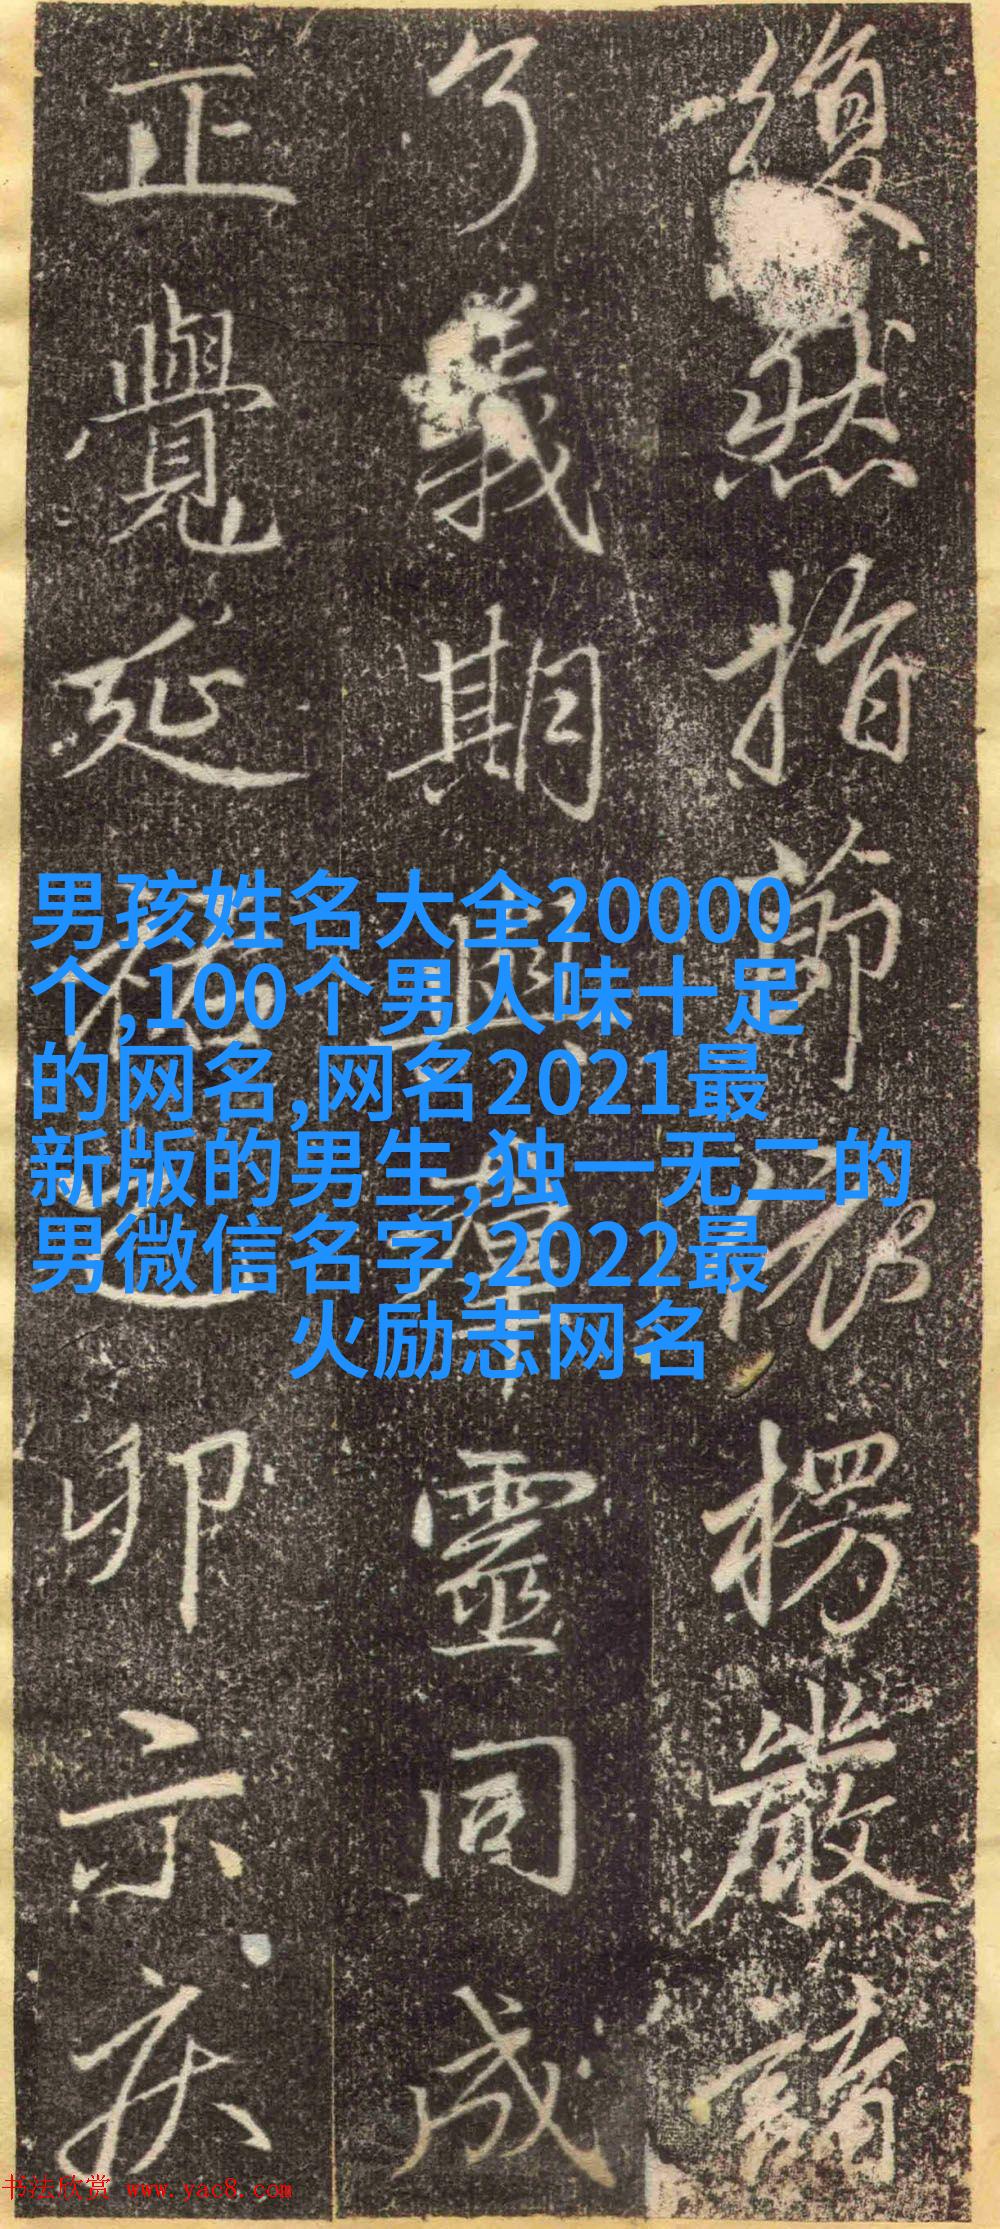 復然指節依楞嚴
了義期與羣靈同成
正覺延卯示
男孩姓名大全20000
个,100个男人味十足
的网名,网名2021最
新版的男生,独一无二的
男微信名字,2022最
火励志网名
书法欣赏 www.yac8.com